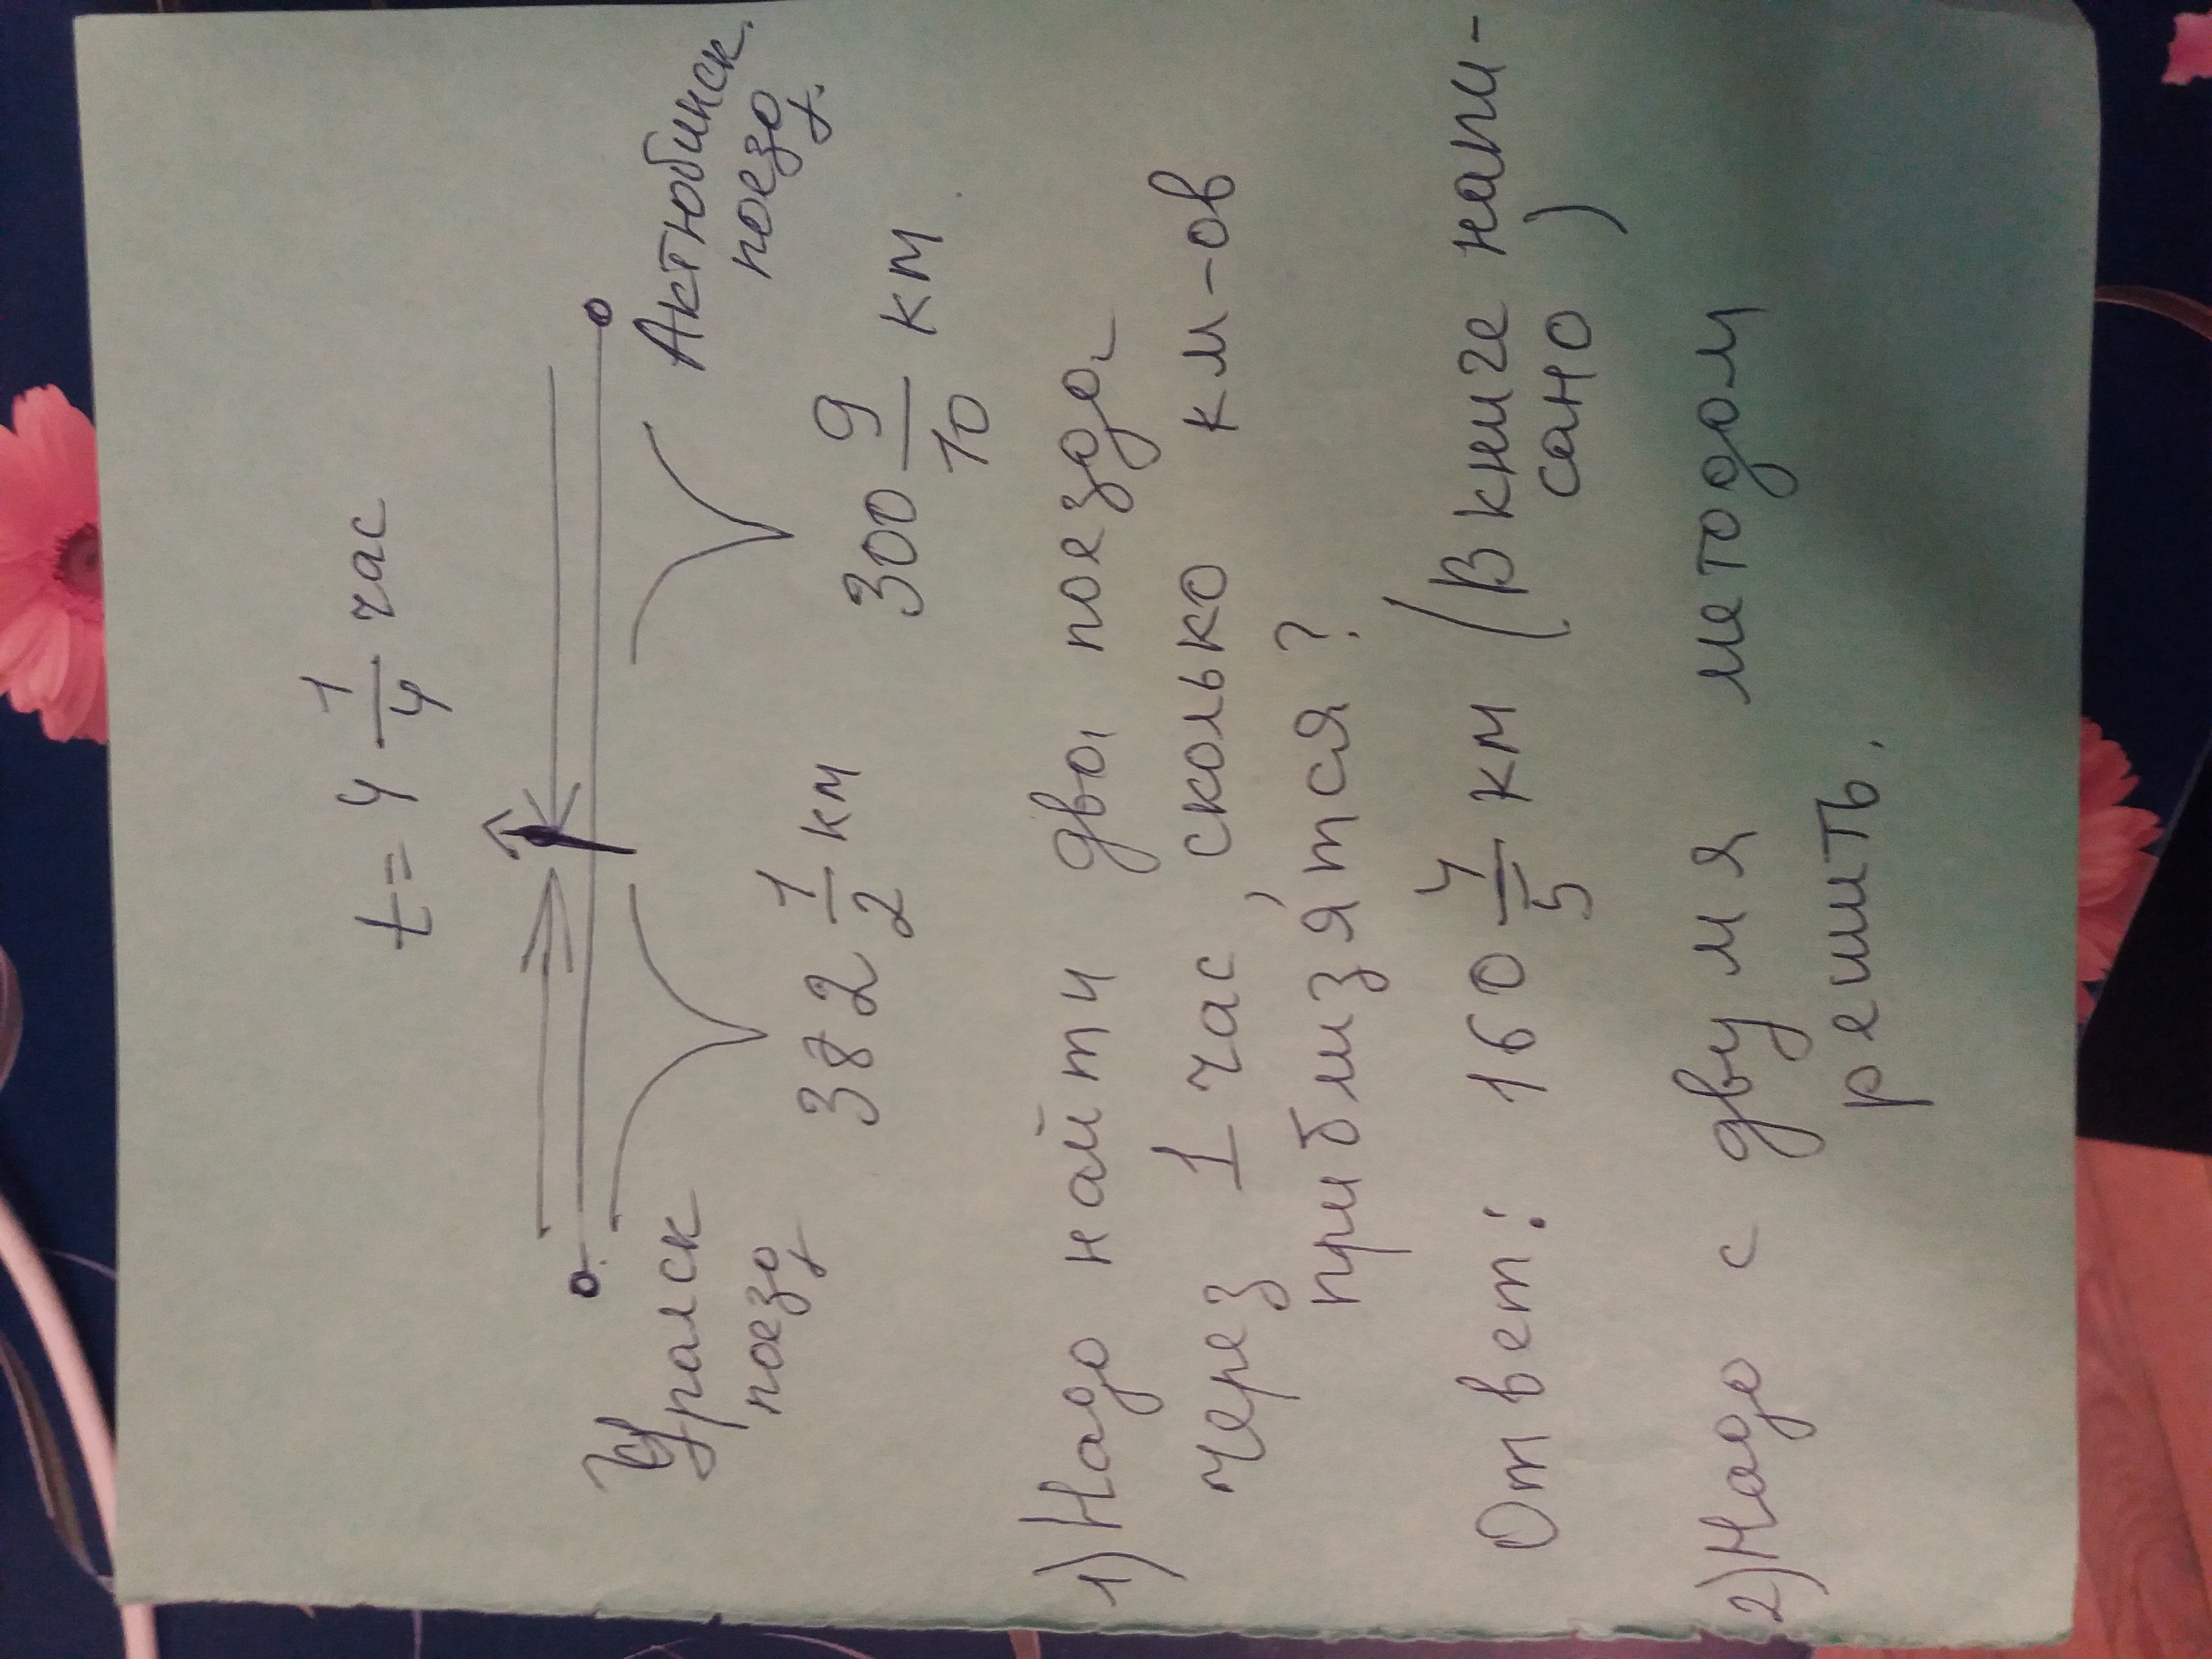 t = 4 1/4 час
Уральск поезд
Актюбинск. поезд.
382 1/2 км
300 9/10 км
1) Надо найти два поезда
через 1 час, сколько км-ов
приблизятся?
Ответ: 160 4/5 км (В книге напи-
сано)
2) Надо с двумя методом
решить.